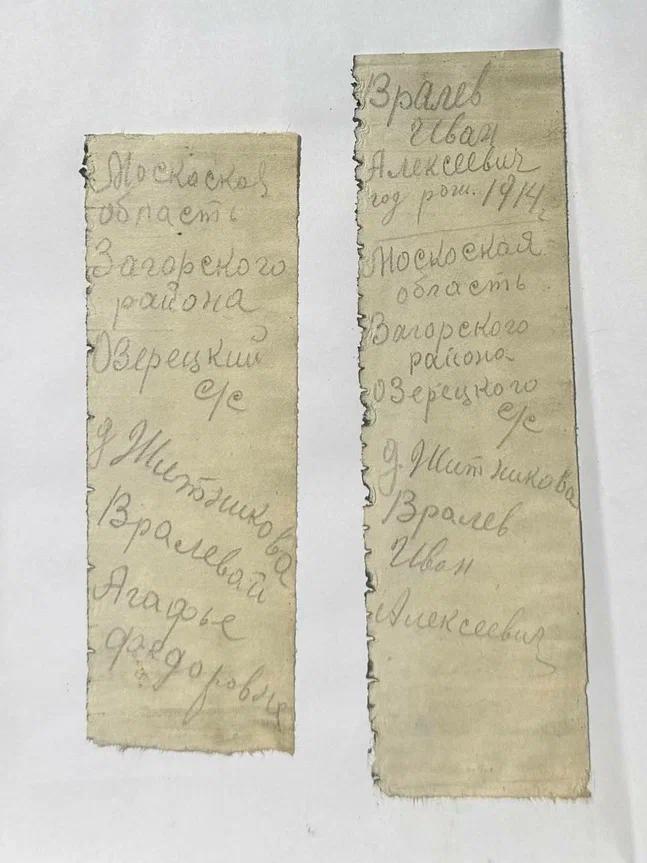 Москоской
область
Загорского
района
Озерецкий
с/с
д Житникова
Вралевай
Агафье
Федоровне
Вралев
Иван
Алексеевич
год рож. 1914г.
Москоская
область
Загорского
района
Озерецкого
с/с
д. Житникова
Вралев
Иван
Алексеевич